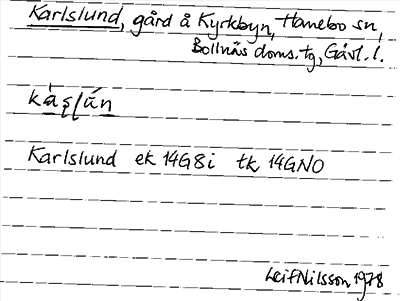 Karlslund, gård å Kyrkbyn, Hanebo sn,
Bollnäs doms.tg, Gävl.l.
Karlslund ek 14G8i tk 14GNO
Leif Nilsson 1978